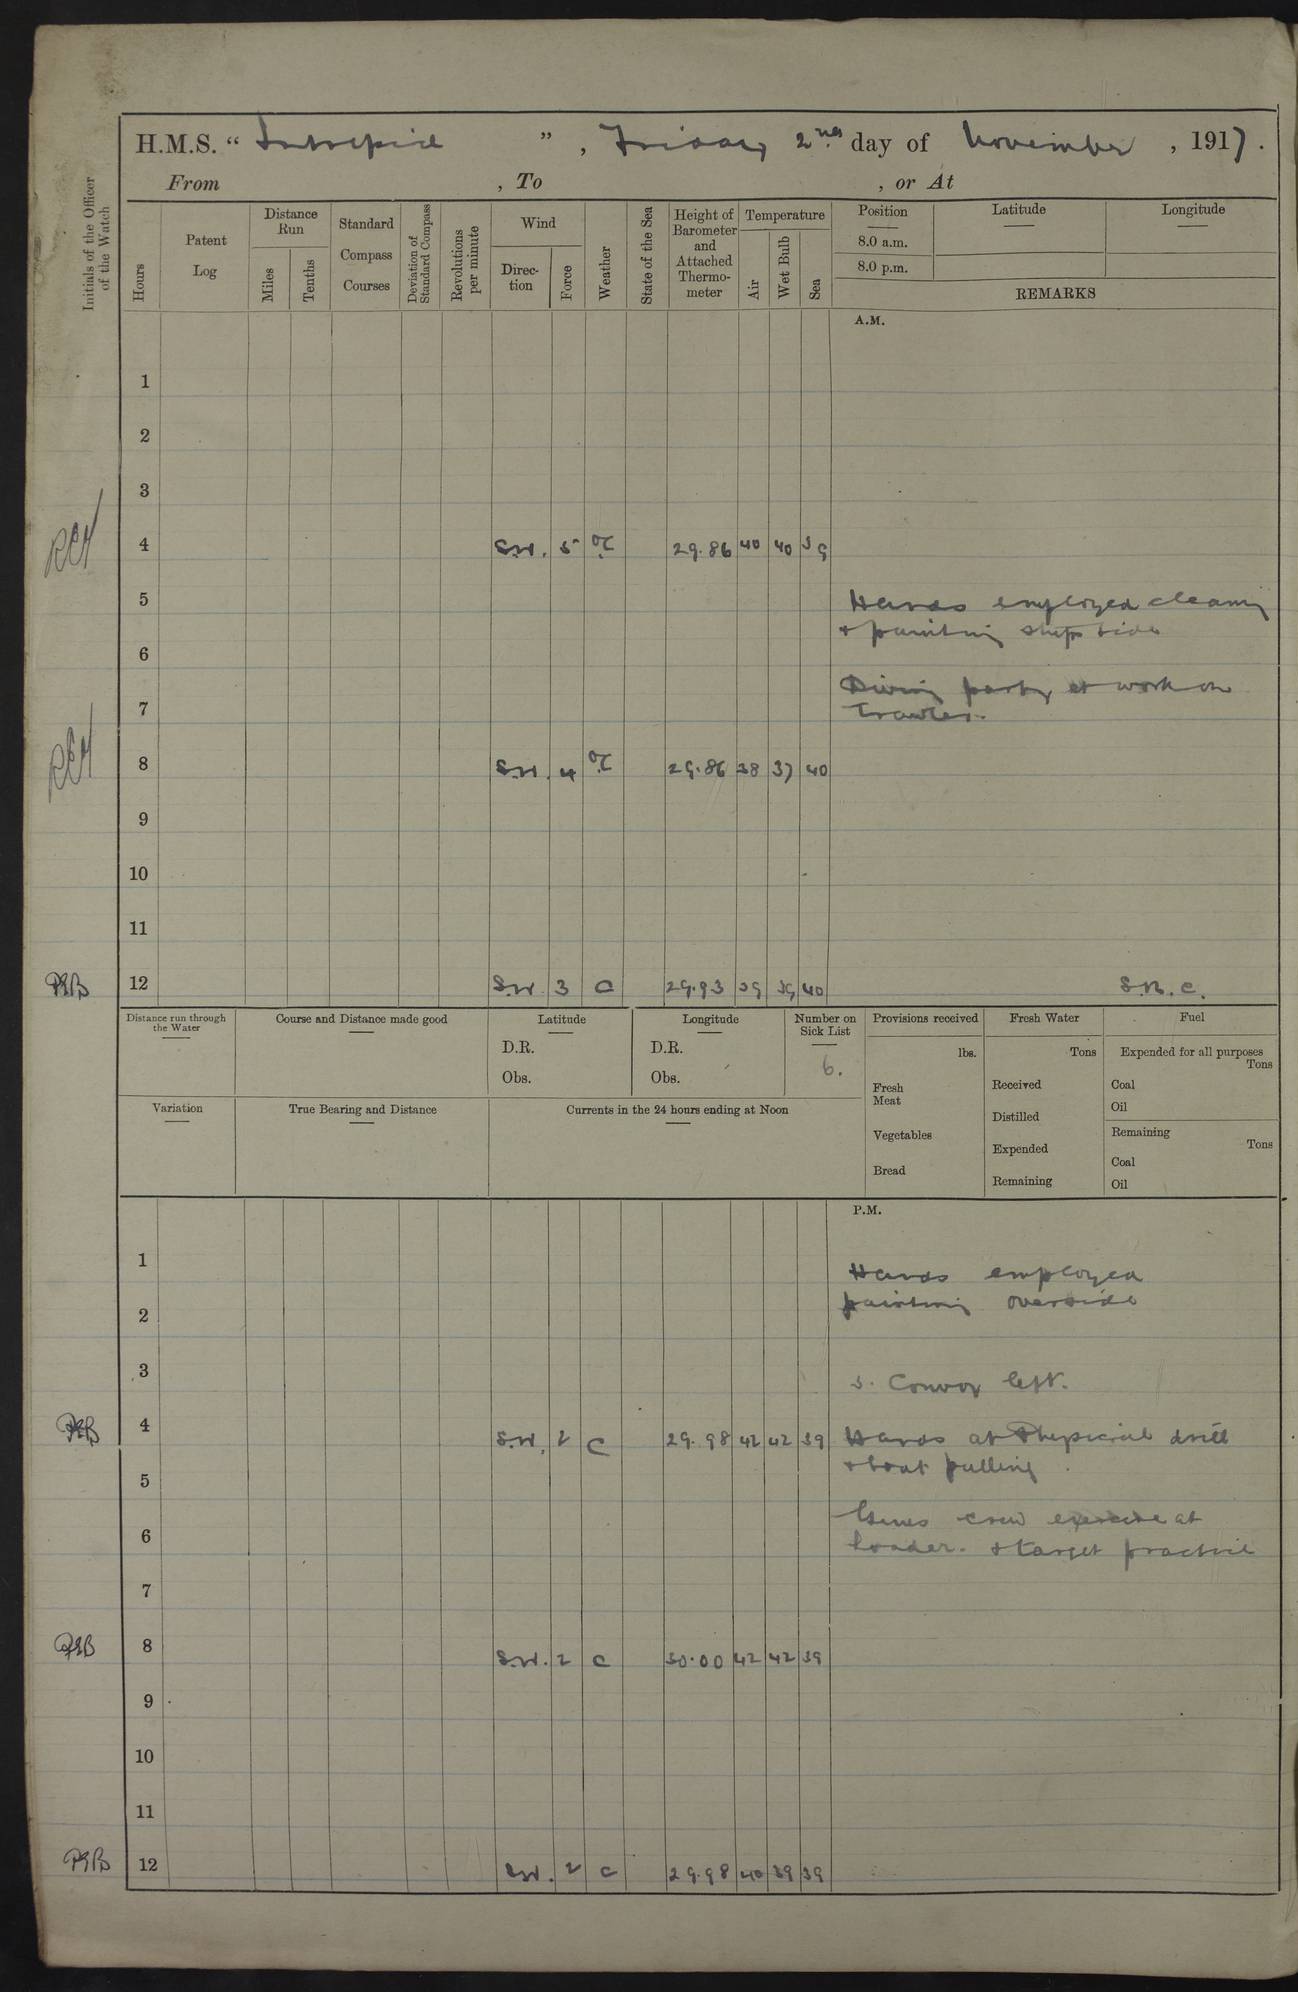 H.M.S. "Intrepid", Friday 2nd day of November, 1917.
From , To , or At
Initials of the Officer of the Watch
Hours
Patent Log
Distance Run
Miles
Tenths
Standard Compass Courses
Deviation of Standard Compass
Revolutions per minute
Wind
Direc-tion
Force
Weather
State of the Sea
Height of Barometer and Attached Thermo-meter
Temperature
Air
Wet Bulb
Sea
Position
8.0 a.m.
8.0 p.m.
Latitude
Longitude
REMARKS
A.M.
1
2
3
4 S.W. 5 29.86 40 40 39
5 Hands employed cleaning
& painting ships side
6
Diving party at work on
7 Trawler.
8 S.W. 4 29.86 38 37 40
9
10
11
PEB 12 S.W. 3 C 29.93 39 39 40 S.R.C.
Distance run through the Water
Course and Distance made good
Latitude
D.R.
Obs.
Longitude
D.R.
Obs.
Number on Sick List
6.
Provisions received
lbs.
Fresh Meat
Vegetables
Bread
Fresh Water
Tons
Received
Distilled
Expended
Remaining
Fuel
Expended for all purposes
Tons
Coal
Oil
Remaining
Tons
Coal
Oil
Variation
True Bearing and Distance
Currents in the 24 hours ending at Noon
P.M.
1 Hands employed
2 painting overside
3 3. Convoy left.
PEB 4 S.W. 2 C 29.98 42 42 39 Hands at Physical drill
5 & boat pulling.
Guns crew exercise at
6 loader. & target practice
7
PEB 8 S.W. 2 C 30.00 42 42 39
9
10
11
PEB 12 S.W. 2 C 29.98 40 39 39